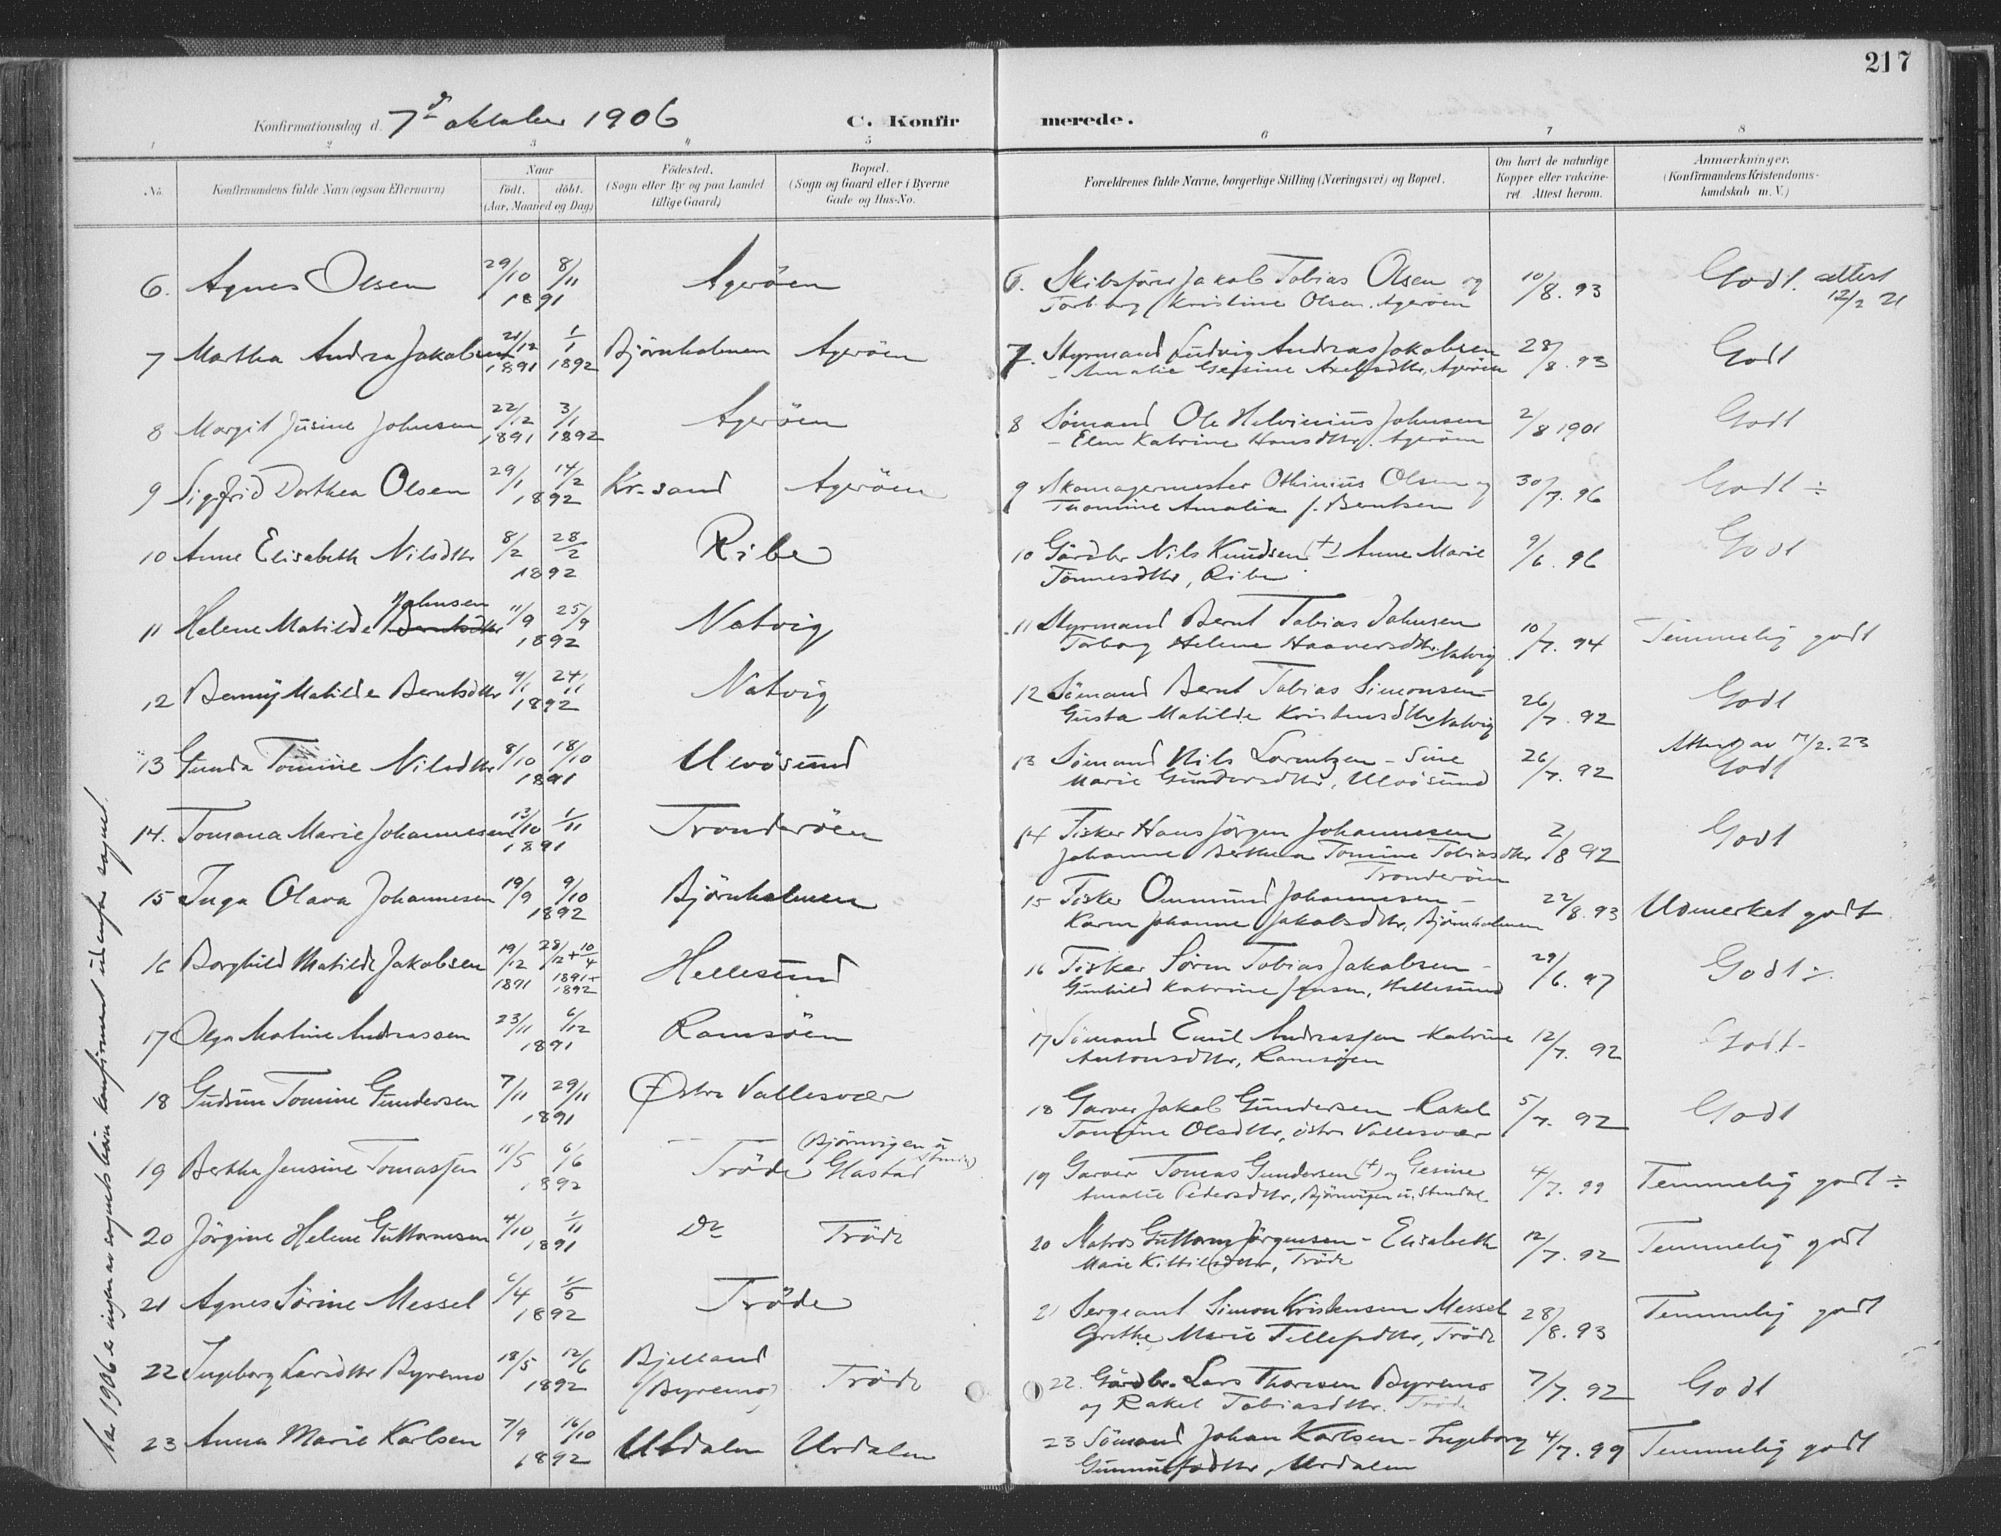 217
Konfirmationsdag d. 7de oktober 1906
C. Konfirmerede.
1 2 3 4 5 6 7 8
No.
Konfirmandens fulde Navn (ogsaa Efternavn)
Naar født. døbt. (Aar, Maaned og Dag)
Fødested. (Sogn eller By og paa Landet tillige Gaard)
Bopæl. (Sogn og Gaard eller i Byerne Gade og Hus-No.
Forældrenes fulde Navne, borgerlige Stilling (Næringsvei) og Bopæl.
Om havt de naturlige Kopper eller vakcineret. Attest herom.
Anmærkninger. (Konfirmandens Kristendomskundskab m. V.)
6. Agnes Olsen 29/10 8/11 1891 Agerøen
6. Skibsfører Jakob Tobias Olsen og 10/8. 93 Godt. attest 12/2 21
Torborg Kristine Olsen. Agerøen
7 Martha Andrea Jakobsen 21/12 1891 1/1 1892 Bjørnholmen Agerøen
7. Styrmand Ludvig Andreas Jakobsen 28/8. 93 Godt
- Amalie Gesine Axelsdtr, Agerøen
8 Margit Jusine Johnsen 22/12 1891 3/1 1892 Agerøen
8 Sømand Ole Helvinius Johnsen 2/8 1901 Godt
- Elen Katrine Hansdtr. Agerøen
9 Sigfrid Dorthea Olsen 29/1 14/2 1892 Kr-sand Agerøen
9 Skomagermester Othinius Olsen og 30/7. 96 Godt ÷
Tomine Amalia f. Berntsen
10 Anne Elisabeth Nilsdtr 8/2 28/2 1892 Ribe
10 Gårdbr Nils Knudsen (+) - Anne Marie 9/6. 96 Godt
Tønnesdtr, Ribe
11 Helene Matilde Berntsdtr Johnsen 11/9 25/9 1892 Natvig
11 Styrmand Bernt Tobias Johnsen 10/7. 94 Temmelig godt
Torborg Helene Haaversdtr. Natvig
12 Benny Matilde Berntsdtr 9/1 24/11 1892 Natvig
12 Sømand Bernt Tobias Simonsen - 26/7. 92 Godt
Gusta Matilde Kristensdtr Natvig
13 Gunda Tomine Nilsdtr 8/10 18/10 1891 Ulvøsund
13 Sømand Nils Lorentzen - Sine 26/7. 92 Attest av 17/2. 23 Godt
Marie Gundersdtr, Ulvøsund
14. Tomana Marie Johannesen 13/10 1/11 1891 Tronderøen
14 Fisker Hans Jørgen Johannesen 2/8 92 Godt
Johanne Berthea Tomine Tobiasdtr
Tronderøen
15 Inga Olava Johannesen 19/9 9/10 1892 Bjørnholmen
15 Fisker Ommund Johannesen - 22/8. 93 Udmerket godt
Karen Johanne Jakobsdtr, Bjørnholmen
16 Borghild Matilde Jakobsen 19/12 1891 28/12 + 10/4 1891 + 1892 Hellesund
16 Fisker Søren Tobias Jakobsen - 29/6. 97 Godt ÷
Gunhild Katrine Jensen, Hellesund
17 Olga Martine Andreassen 23/11 6/12 1891 Ramsøen
17 Sømand Emil Andreassen Katrine 12/7. 92 Godt
Antonsdtr, Ramsøen
18 Gudrun Tomine Gundersen 7/11 29/11 1891 Østre Vallesvær
18 Garver Jakob Gundersen Rakel 5/7. 92 Godt
Tomine Olsdtr, østre Vallesvær
19 Bertha Jensine Tomassen 11/5 6/6 1892 Trøde Glastad
19 Garver Tomas Gundersen (+) og Gesine 4/7. 99 Temmelig godt ÷
Amalie Pedersdtr, Bjørnvigen u. Stendal
20 Jørgine Helene Guttormsen 4/10 1/11 1891 Do Trøde
20 Matros Guttorm Jørgensen - Elisabeth 12/7. 92 Temmelig godt
Marie Kittilsdtr, Trøde
21 Agnes Sørine Messel 6/4 1/5 1892 Trøde
21 Sergeant Simon Kristensen Messel 28/8. 93 Temmelig godt
Grethe Marie Tellefsdtr, Trøde
22 Ingeborg Larsdtr Byremo 18/5 12/6 1892 Bjelland (Byremo) Trøde
22. Gårdbr. Lars Thoresen Byremo 7/7. 92 Godt
og Rakel Tobiasdtr. Trøde
23 Anna Marie Karlsen 7/9 16/10 1892 Urdalen Urdalen
23 Sømand Johan Karlsen - Ingeborg 4/7. 99 Temmelig godt
Gunnulfsdtr, Urdalen
Aar 1906 er ingen av sognets børn konfirmeret udenfor sognet.